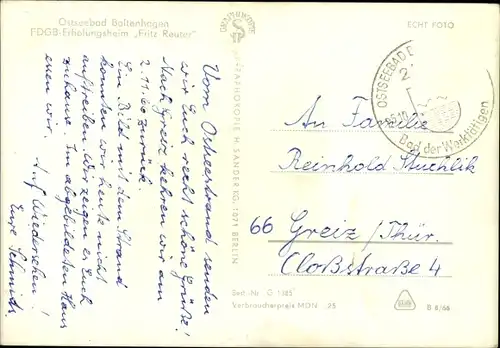 Ostseebad Boltenhagen
FDGB-Erholungsheim „Fritz Reuter"
ECHT FOTO
Vom Ostseestrand senden
wir Euch recht schöne Grüße!
Nach Greiz kehren wir am
2.11.66 zurück.
Ein Bild mit dem Strand
konnten wir heute nicht
auftreiben. Wir zeigen es Euch
zuhause. Im abgebildeten Haus
essen wir.
Auf Wiedersehen!
Eure
H. SANDER KG. 1071 BERLIN
OSTSEEBAD
Bad der Werktätigen
An Familie
Reinhold Stuchlik
66 Greiz/Thür.
Cloßstraße 4
Best.-Nr. G 1985
Verbraucherpreis MDN -.25
B 8/66